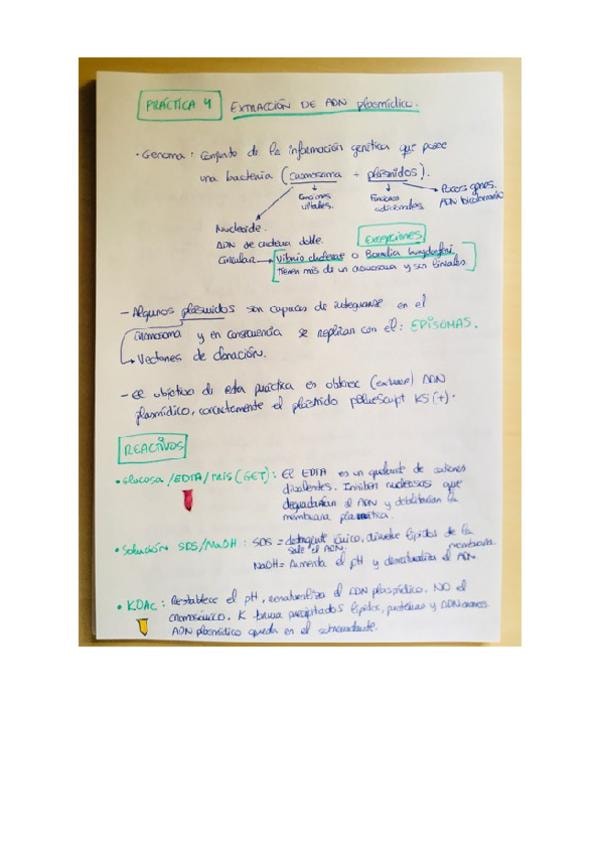 PRÁCTICA 4 EXTRACCIÓN DE ADN plasmídico.
• Genoma: Conjunto de la información genética que posee
una bacteria (cromosoma + plásmidos).
Funciones vitales.
Funciones adicionales
Pocos genes.
ADN bicatenario
Nucleoide.
ADN de cadena doble.
Circular
EXCEPCIONES
Vibrio cholerae o Borrelia burgdorferi
tienen más de un cromosoma y son lineales
- Algunos plásmidos son capaces de integrarse en el
cromosoma y en consecuencia se replican con el: EPISOMAS.
Vectores de clonación.
- El objetivo de esta práctica es obtener (extraer) ADN
plasmídico, concretamente el plásmido KS (+).
REACTIVOS
• Glucosa / EDTA / TRIS (GET): El EDTA es un quelante de cationes
divalentes. Inhiben nucleasas que
degradarían el ADN y debilitarían la
membrana
• Solución SDS/NaOH: SDS = detergente iónico, disuelve lípidos de la membrana
sale el ADN.
NaOH = Aumenta el pH y desnaturaliza el ADN
• KOAc: Restablece el pH, renaturaliza el ADN plasmídico. NO el
cromosómico. K forma precipitados lípidos, proteínas y
ADN plasmídico queda en el sobrenadante.